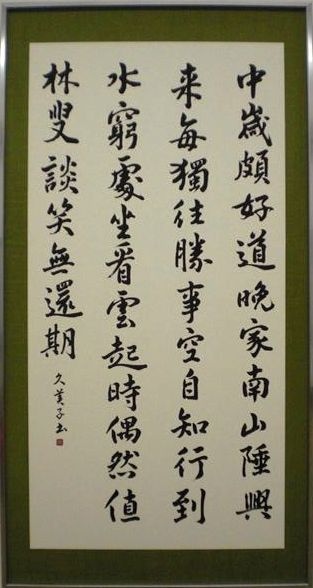 中歳頗好道晩家南山陲興
来毎獨往勝事空自知行到
水窮處坐看雲起時偶然値
林叟談笑無還期
久美子書